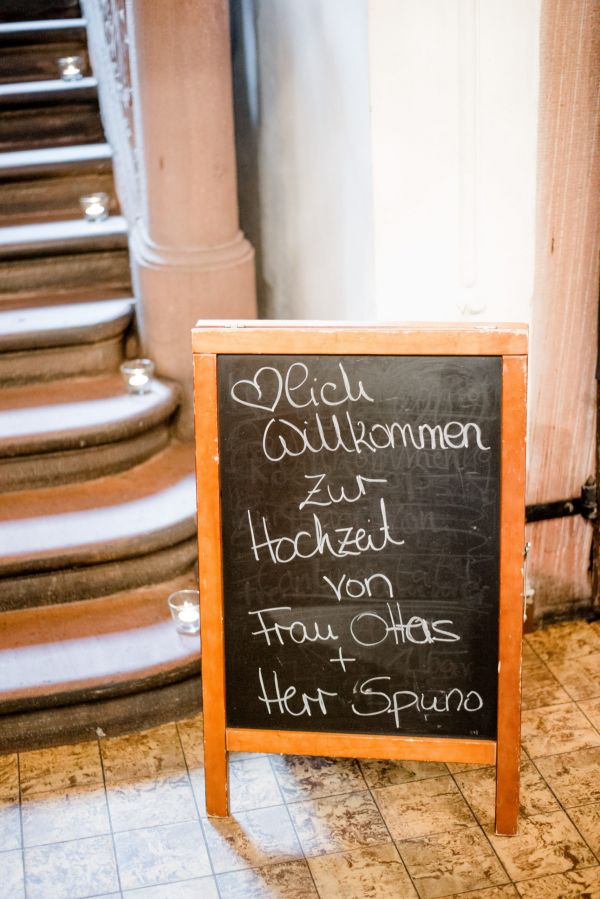 ♡lich
Willkommen
zur
Hochzeit
von
Frau Ottas
+
Herr Spuno